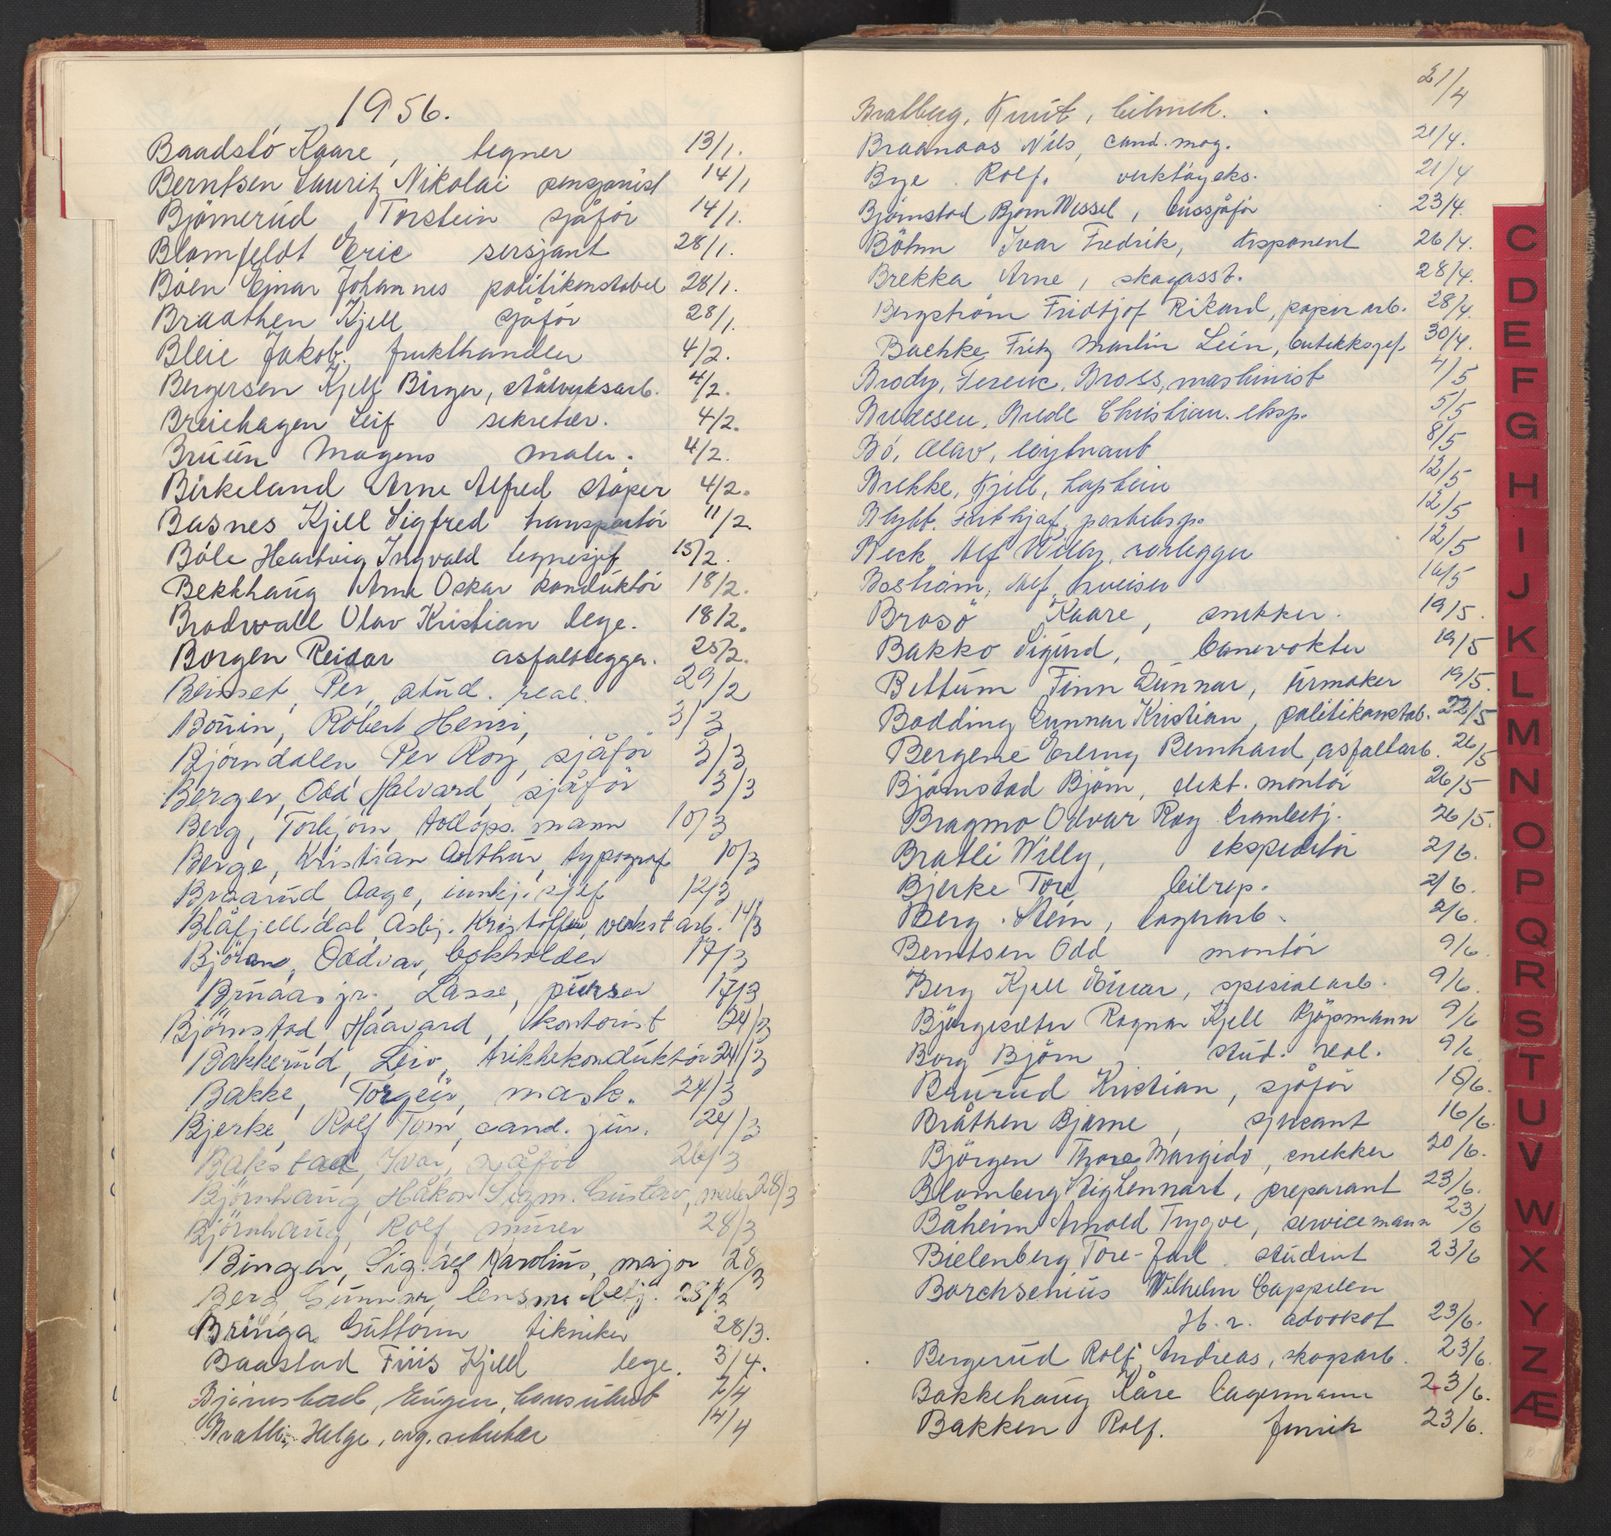 1956.
Baadstö Kaare, tegner 13/1.
Berntsen Lauritz Nikolai pensjonist 14/1
Björnerud Torstein sjåför 14/1.
Blomfeldt Eric sersjant 28/1.
Böen Ejnar Johannes politikonstabel 28/1.
Braathen Kjell, sjåför 28/1.
Bleie Jakob, frukthandler 4/2.
Bergersen Kjell Birger, stålverksarb. 4/2.
Breiehagen Leif sekretær. 4/2.
Bruun Mogens maler. 4/2.
Birkeland Arne Alfred støper 4/2.
Basnes Kjell Sigfred transportör 11/2
Böle Hartvig Ingvald tegnesjef 15/2.
Bekkhaug Arne Oskar konduktör 18/2.
Brodwall Olav Kristian lege. 18/2.
Borgen Reidar asfaltlegger. 25/2.
Beinset, Per, stud. real. 29/2
Bouin, Robert Henri, 3/3
Bjørndalen, Per Roy, sjåför 3/3
Berger, Odd Halvard, sjåför 3/3
Berg, Torbjörn, tollops. mann 10/3
Berge, Kristian Arthur, typograf 10/3
Braarud, Aage, innkj. sjef 12/3
Blåfjelldal, Asbj. Kristoffer, verkst arb. 14/3
Björano, Oddvar, bokholder 17/3
Bruaas jr., Lasse, purser 17/3
Björnstad, Haavard, kontorist 24/3
Bakkerud, Leiv, trikkekonduktör 24/3
Bakke, Torgeir, mask. 24/3
Bjerke, Rolf Tom, cand. jur. 24/3
Bakstad, Ivar, sjåför 26/3
Björnhaug, Håkon Sigm. Gustav, maler 28/3
Björnhaug, Rolf, murer 28/3
Bingen, Sig. Alf Karolius, major 28/3
Berg, Gunnar, lensm. betj. 28/3
Bringa Guttorm tekniker 28/3.
Baastad Friis Kjell lege. 3/4.
Björnstad, Eugen, konsulent 7/4
Bratli, Helge, org. sekretær 14/4
Bratberg, Knut, bilmek. 21/4
Braanaas Nils, cand. mag. 21/4.
Bye Rolf. verktøyeks. 21/4
Björnstad Bjørn Wessel, bussjåför 23/4.
Böhm Ivar Fredrik, disponent 26/4.
Brekka Arne, skogasst. 28/4.
Bergström Fridtjof Rikard, papir arb. 28/4.
Baehke Fritz Martin Lein, butikksjef. 30/4.
Brody, Ferenc, Bross, maskinist 4/5
Bredesen, Brede Christian. eksp. 5/5
Bö, Olav, löytnant 8/5
Brekke, Kjell, kaptein 12/5
Blybt. Fridtjof, posteksp. 12/5
Beck, Alf Willy, rørlegger 12/5
Boström, Alf, sveiser 16/5
Brosö Kaare, snekker. 19/5.
Bakko Sigurd, banevokter 19/5
Bettum Finn Gunnar, urmaker 19/5.
Bodding Gunnar Kristian, politikonstab. 22/5
Bergene Erling Bernhard, asfaltarb. 26/5
Björnstad Björn, elekt. montör 26/5
Bragmo Odvar Roy tranbetj. 26/5.
Bratli Willy, ekspeditör 2/6.
Bjerke Tore bilrep. 2/6.
Berg Stein, lagerarb. 2/6.
Berntsen Odd montör 9/6.
Berg Kjell Einar, spesialarb. 9/6.
Björgesæter Ragnar Kjell kjöpmann 9/6
Borg Björn, stud. real. 9/6.
Baurud Kristian, sjåför 16/6.
Bråthen Bjarne, sjersant 16/6.
Björgen Thore Margido, snekker 20/6.
Blomberg Stig Lennart, preparant 23/6.
Båheim Arnold Trygve, servicemann 23/6
Bielenberg Tore-Jarl. student 23/6
Borchsenius Wilhelm Cappelen
H. r. advokat 23/6.
Bergerud Rolf Andreas, skogsarb. 23/6.
Bakkehaug Kåre lagermann 23/6.
Bakken Rolf. fenrik 23/6.
C
D
E
F
G
H
I
J
K
L
M
N
O
P
Q
R
S
T
U
V
W
X
Y
Z
Æ